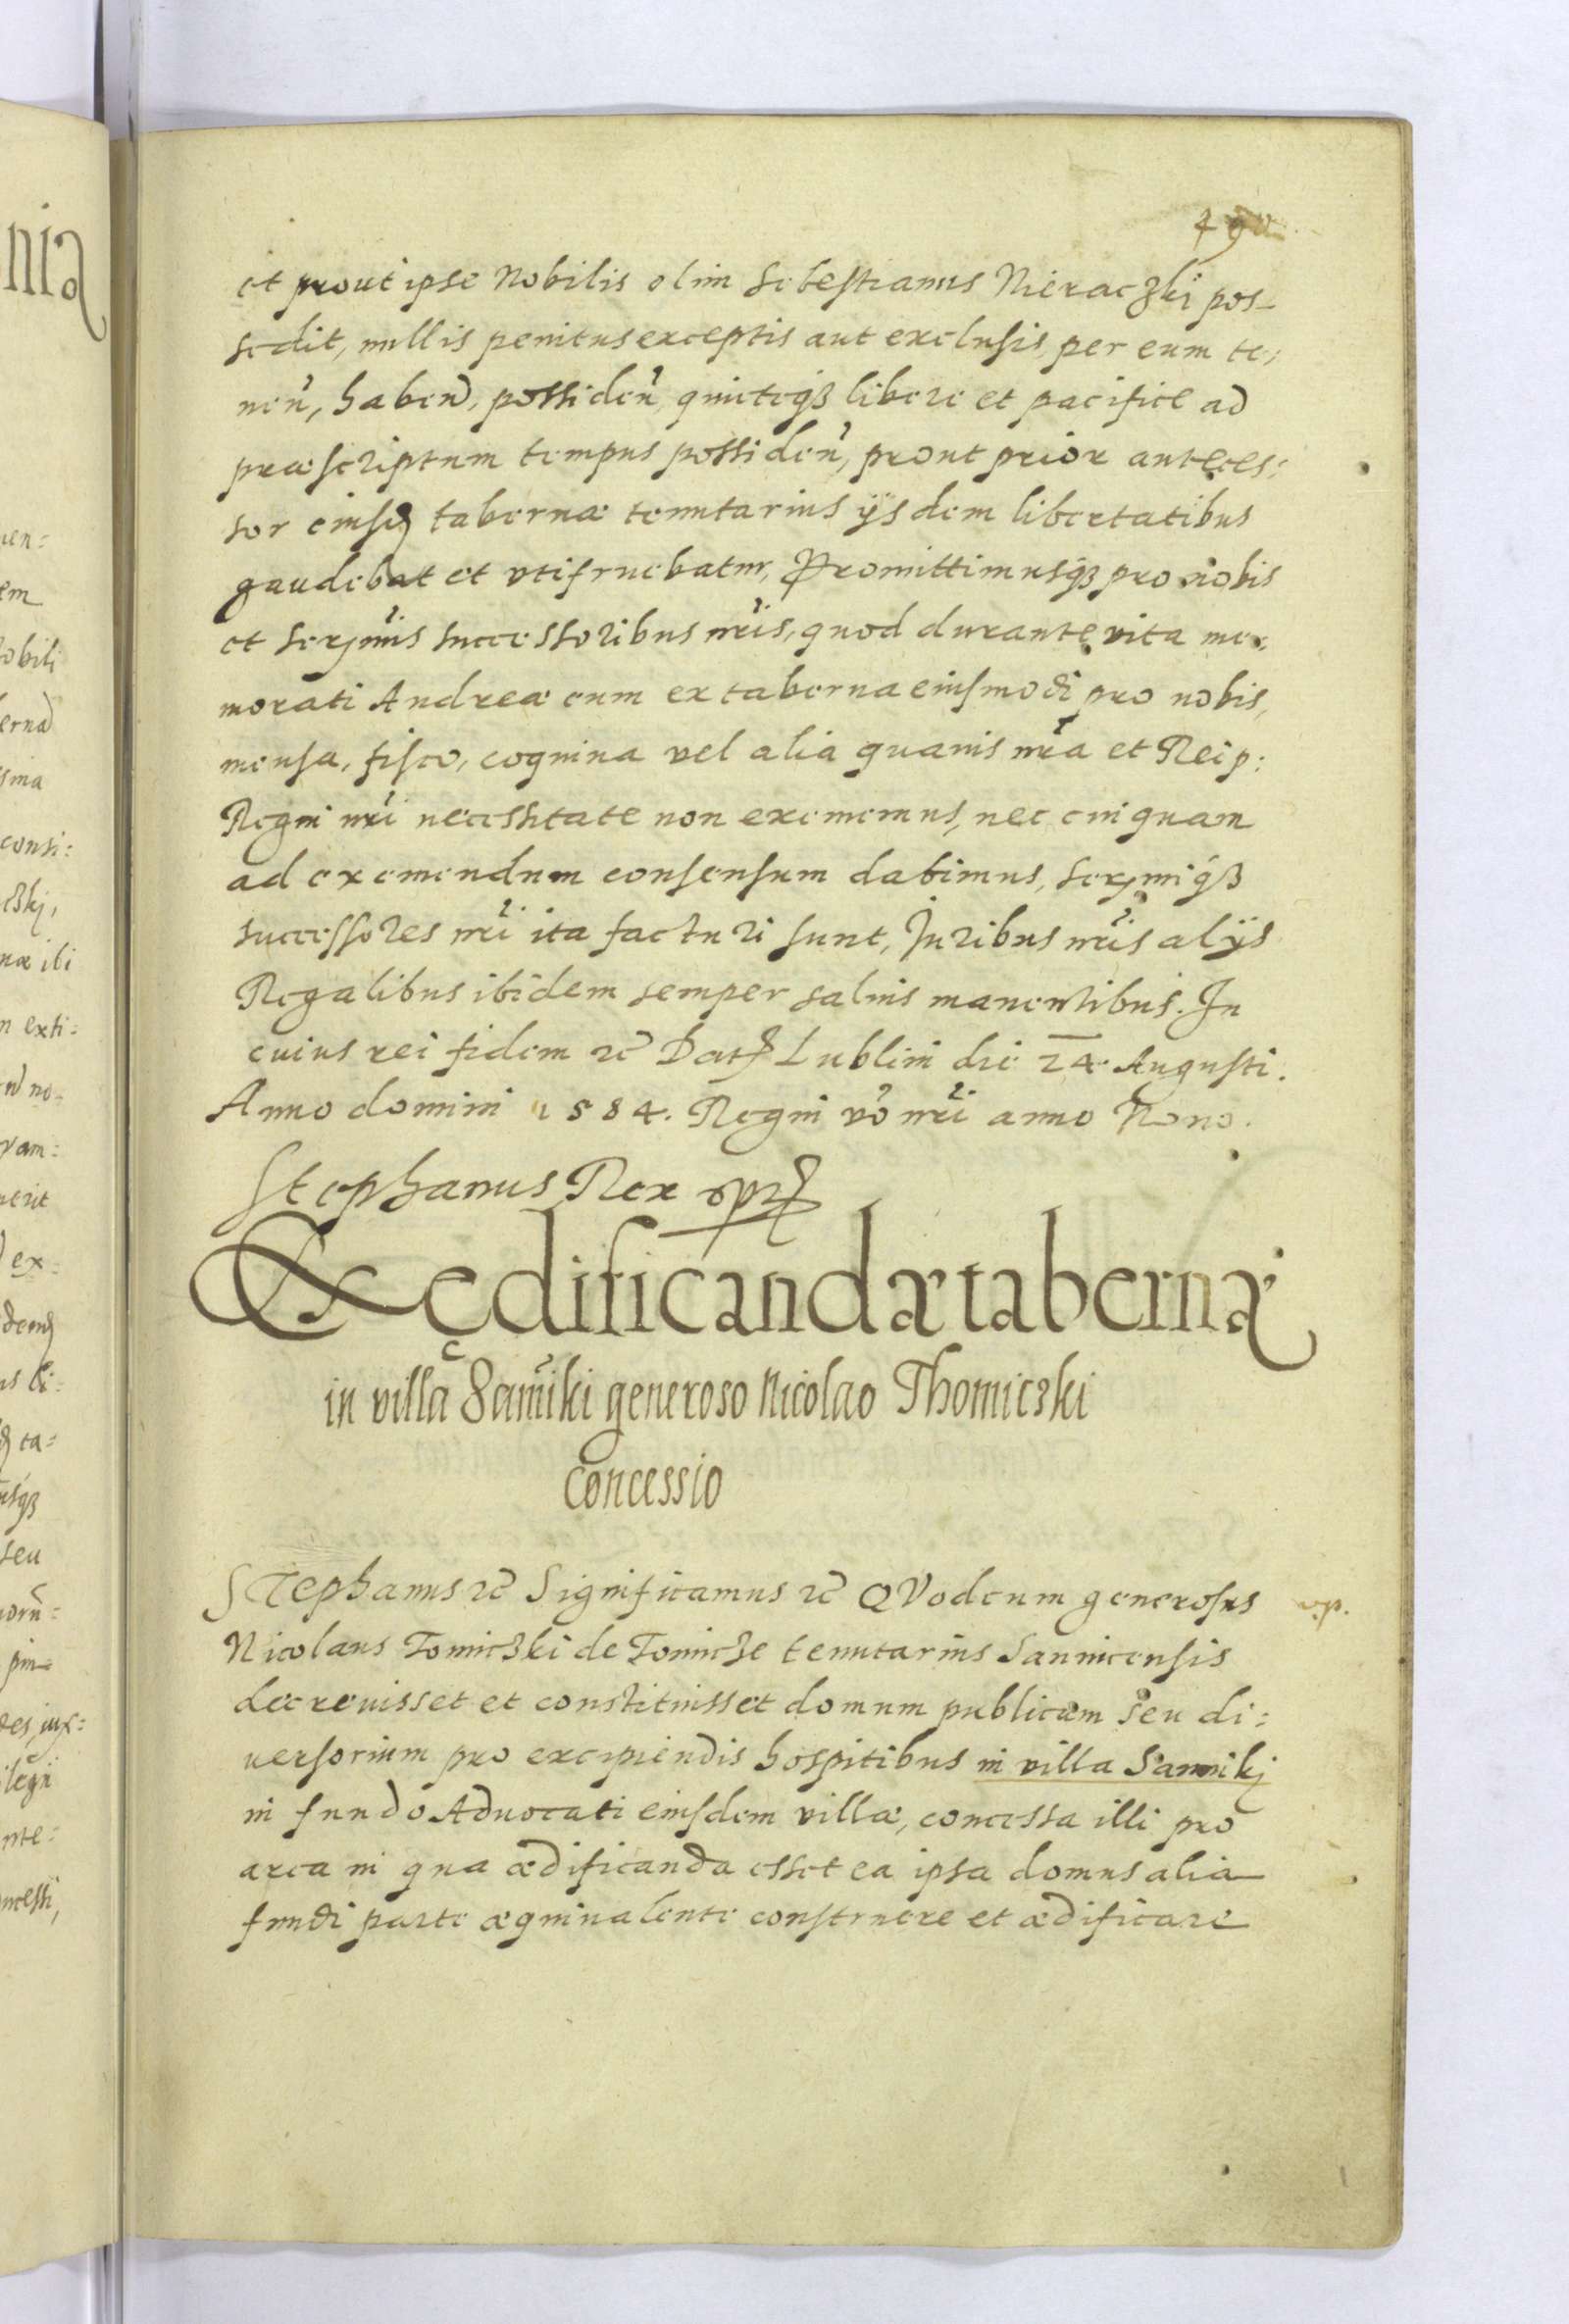 et prout ipse Nobilis olim Sebestianus Nieraczki pos-
sedit, nullis penitus exceptis aut exclusis, per eum te:
neñ, habend, possideñ, quieteq₃ libere et pacifice ad
præscriptum tempus possideñ, prout prior anteces:
sor eiusd tabernæ tenutarius ijsdem libertatibus
gaudebat et vtifruebatur, Promittimusq₃ pro nobis
et serṁis successoribus nr̃is, quod durante vita me:
morati Andreæ eum ex taberna eiusmodi pro nobis,
mensa, fisco, coquina vel alia quauis nr̃a et Reip:
Regni nr̃i necessitate non ememus, nec cuiquam
ad exemendum consensum dabimus, serṁiq₃
successores nr̃i ita facturi sunt, Juribus nr̃is alijs
Regalibus ibidem semper saluis manentibus. In
cuius rei fidem ꝛc̃ Dat Lublini die 24 Augusti.
Anno domini 1584. Regni võ nr̃i anno Nono.
Stephanus Rex
Aedificandæ tabernæ
in villa Sañiki generoso Nicolao Thomiczki
concessio
Stephanus ꝛc̃ Significamus ꝛc̃ QVod cum generosus
v.p.
Nicolaus Tomiczki de Tomicze tenutarius Sannicensis
decreuisset et constituisset domum publicam seu di:
uersorium pro excipiendis hospitibus in villa Sannikj
in fundo Aduocati eiusdem villæ, concessa illi pro
area in qua ædificanda esset ea ipsa domus alia
fundi parte æquiualente construere et ædificare